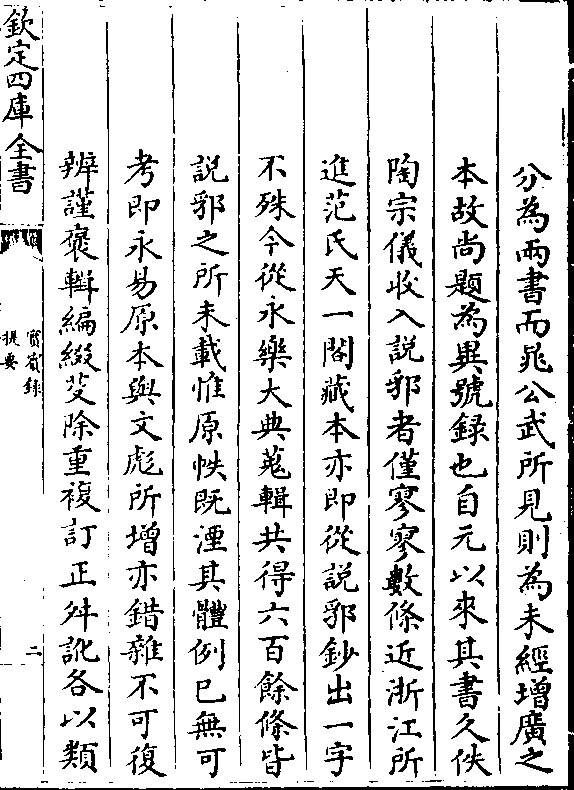 分為兩書而晁公武所見則為未經增廣之
本故尚題為異號録也自元以來其書久佚
陶宗儀收入說郛者僅寥寥數條近浙江所
進范氏天一閣藏本亦即從說郛鈔出一字
不殊今從永樂大典蒐輯共得六百餘條皆
說郛之所未載惟原帙既湮其體例已無可
考即永易原本與文彪所增亦錯雜不可復
辨謹裒輯編綴芟除重複訂正舛訛各以類
欽定四庫全書
實賓録
提要
二